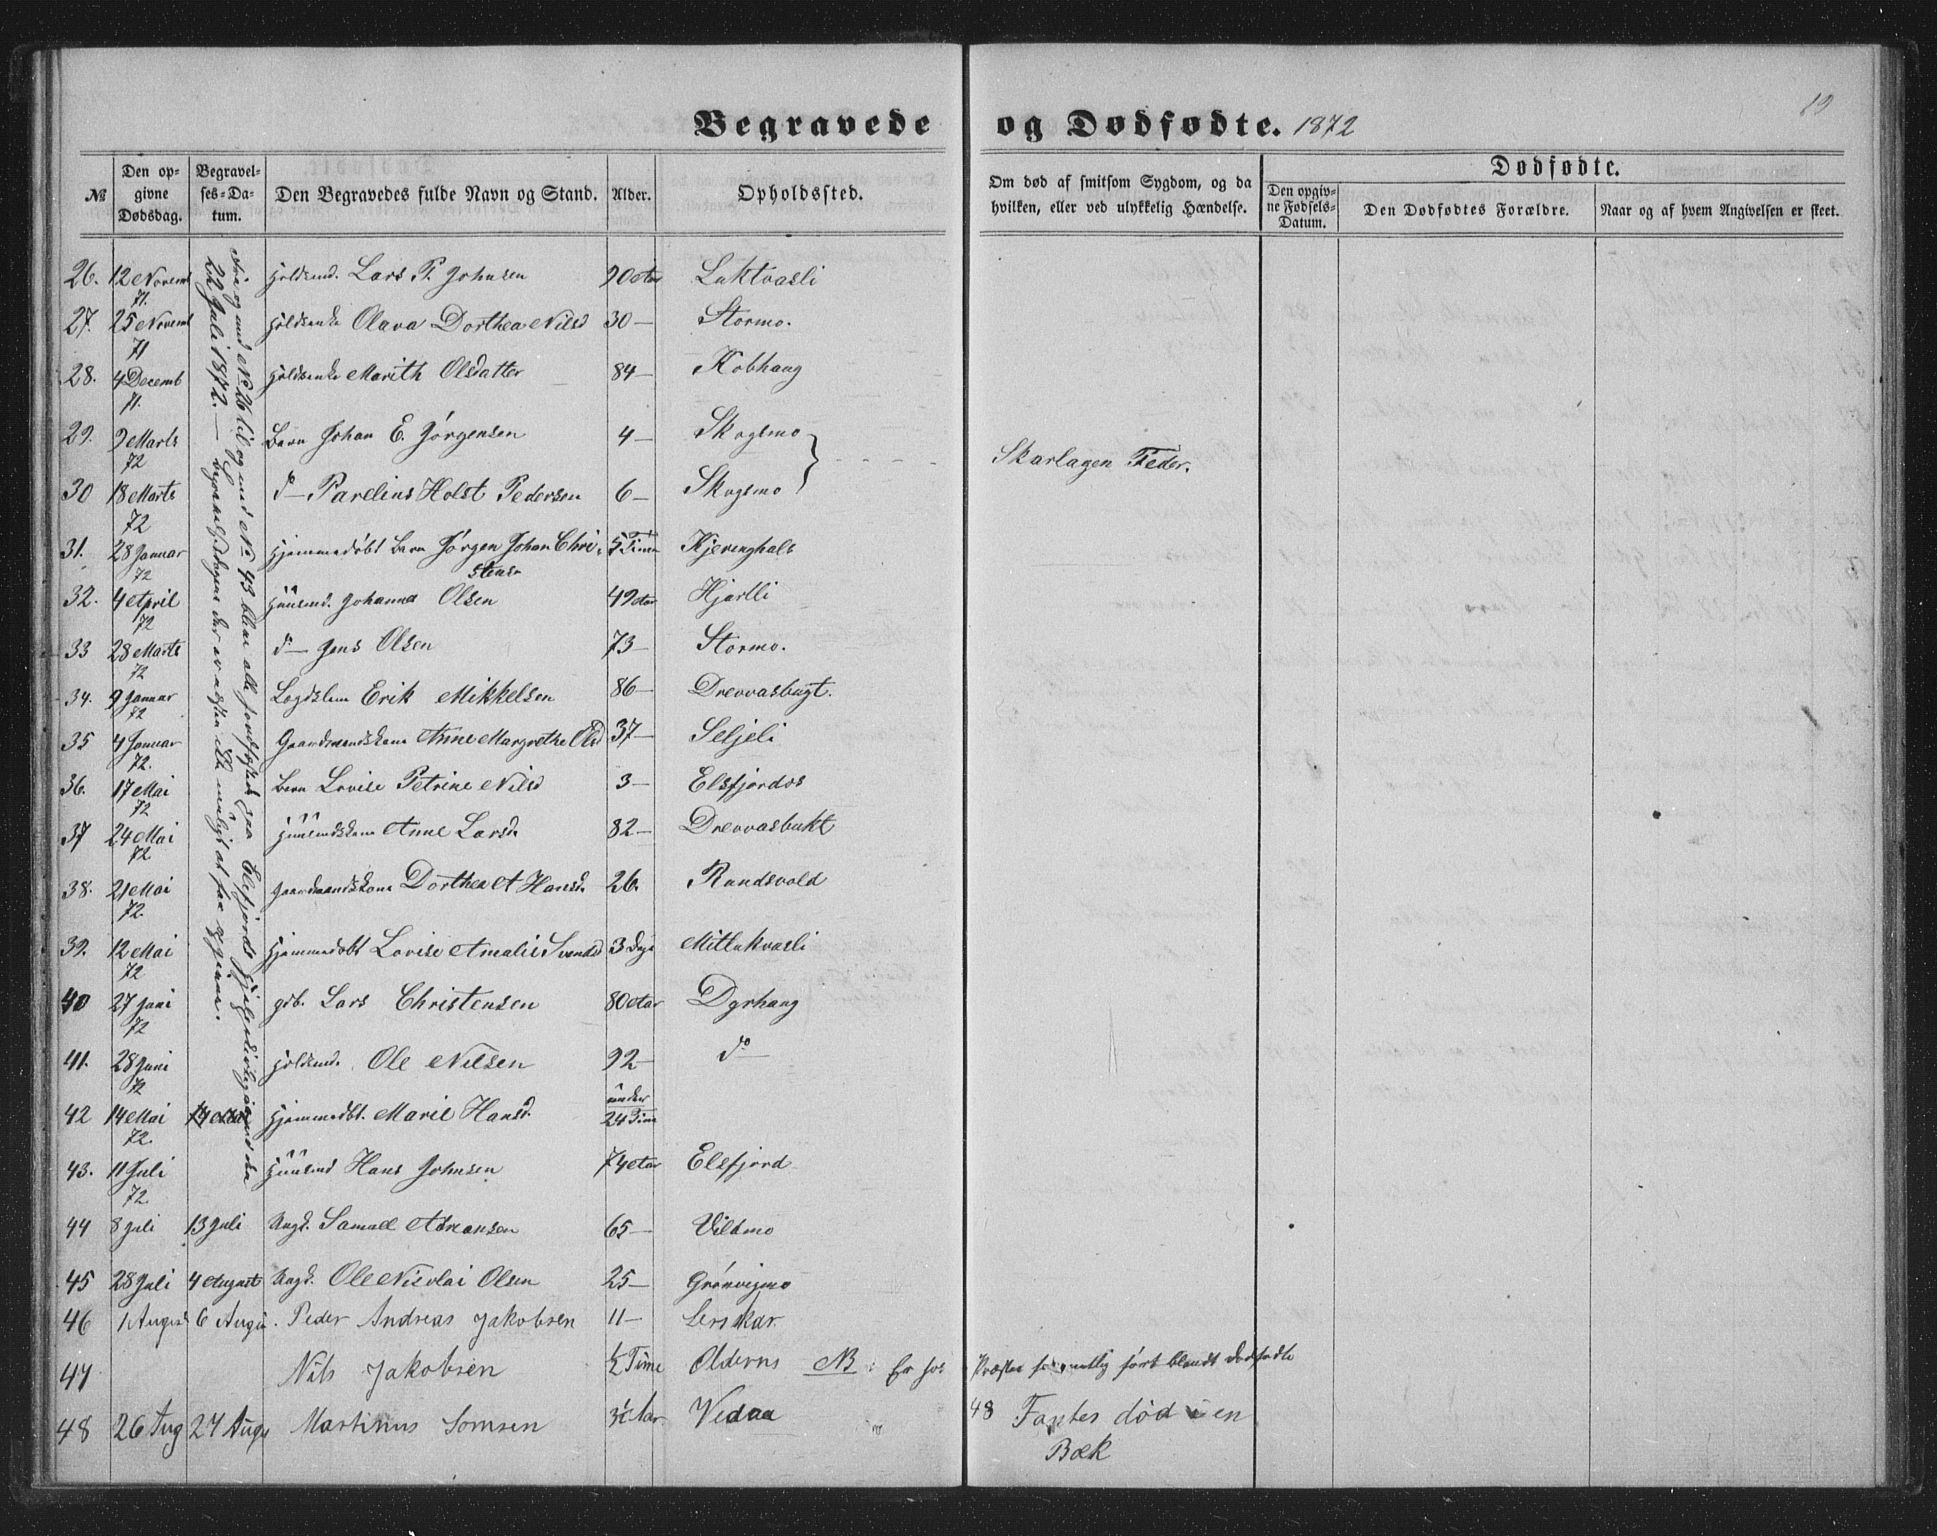 Begravede og Dødfødte. 1872
19
№ Den opgivne Dødsdag. Begravelses-Datum. Den Begravedes fulde Navn og Stand. Alder. Opholdssted. Om død af smitsom Sygdom, og da hvilken, eller ved ulykkelig Hændelse. Dødfødte. Den opgivne Fødsels-Datum. Den Dødfødtes Forældre. Naar og af hvem Angivelsen er skeet.
Fra og med No 26 til og med No 43 blev alle jordfæstede paa Elsfjords
22 Juli 1872. — Begravelsesdagene
26. 12 Novemb 71. Lars P. Johnsen 90 Aar Luktvasli
27. 25 Novemb 71 Olava Dorthea Nilsd 30 — Stormo.
28. 4 Decemb 71. Marith Olsdatter 84 — Kobhaug
29. 9 Marts 72 Barn Johan E. Jörgensen 4 — Skogsmo
Skarlagen Feber.
30 18 Marts 72 do — Parelius Holst Pedersen 6 — Skogsmo
31. 28 Januar 72 hjemmedöbt Barn Jörgen Johan Christens. 5 Timer Kjeringhals
32. 4 April 72 Huusmd. Johannes Olsen 49 Aar Hjartli
33 28 Marts 72 do — Jens Olsen 73 — Stormo.
34. 9 Januar 72 Lægdslem Erik Mikkelsen 86 — Drevvasbugt.
35 4 Januar 72. Gaardmandskone Anne Margrethe Olsd 37 — Seljeli
36. 17 Mai 72 Barn Lovise Petrine Nilsd 3 — Elsfjordos
37 24 Mai 72 Huusmdskone Anne Larsd. 82 — Drevvasbukt
38. 21 Mai 72. Gaardmandskone Dorthea A Hansd. 26. Randsvold
39. 12 Mai 72 Hjemmedöbt Lovise Amalie Svendsd 3 Dage Mitlukvasli
40 27 Juni 72 gdb. Lars Christensen 80 Aar Dyrhaug
41. 28 Juni 72 Ole Nilsen 92 — do —
42 14 Mai 72. Hjemmedbt. Marie Hansd. under 24 Tim
43. 11 Juli 72. Huusmd Hans Johnsen 74 Aar Elsfjord
44 8 Juli 13 Juli Ungk. Samuel Adreansen 65 — Vildmo
45 28 Juli 4 August Ungk. Ole Nicolai Olsen 25 — Grönvigmo
46 1 August 6 Augu. Peder Andreas Jakobsen 11 — Lerskar
47 Nils Jakobsen ½ Time Olderns NB: Er hos Præsten formentlig fört blandt dödfödte
48 26 Aug 27 Augs Martinus Tomsen 3½ Aar Vedaa 48 Fantes död i en
Bæk